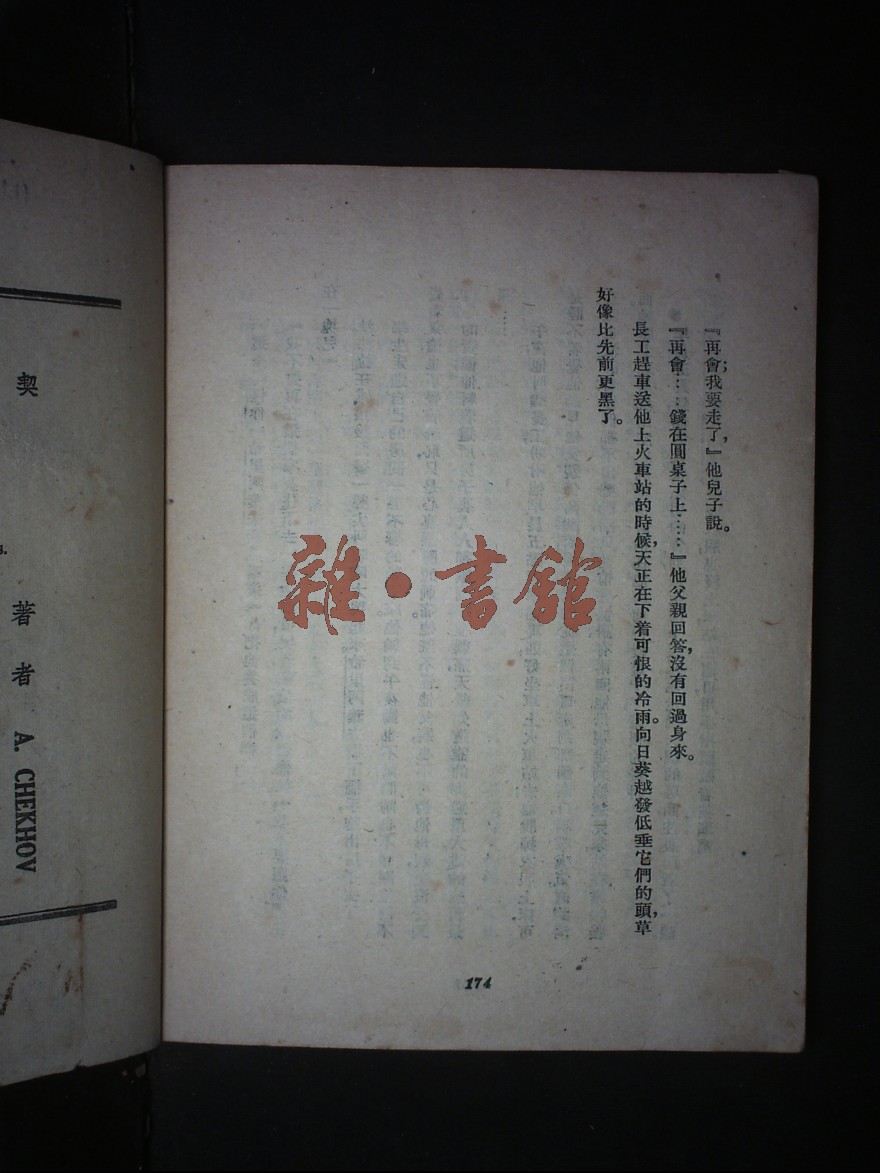 『再會；我要走了，』他兒子說。
『再會……錢在圓桌子上……』他父親回答，沒有回過身來。
長工趕車送他上火車站的時候，天正在下着可恨的冷雨。向日葵越發低垂它們的頭，草
好像比先前更黑了。
174
雜·書館
契
著者 A. CHEKHOV